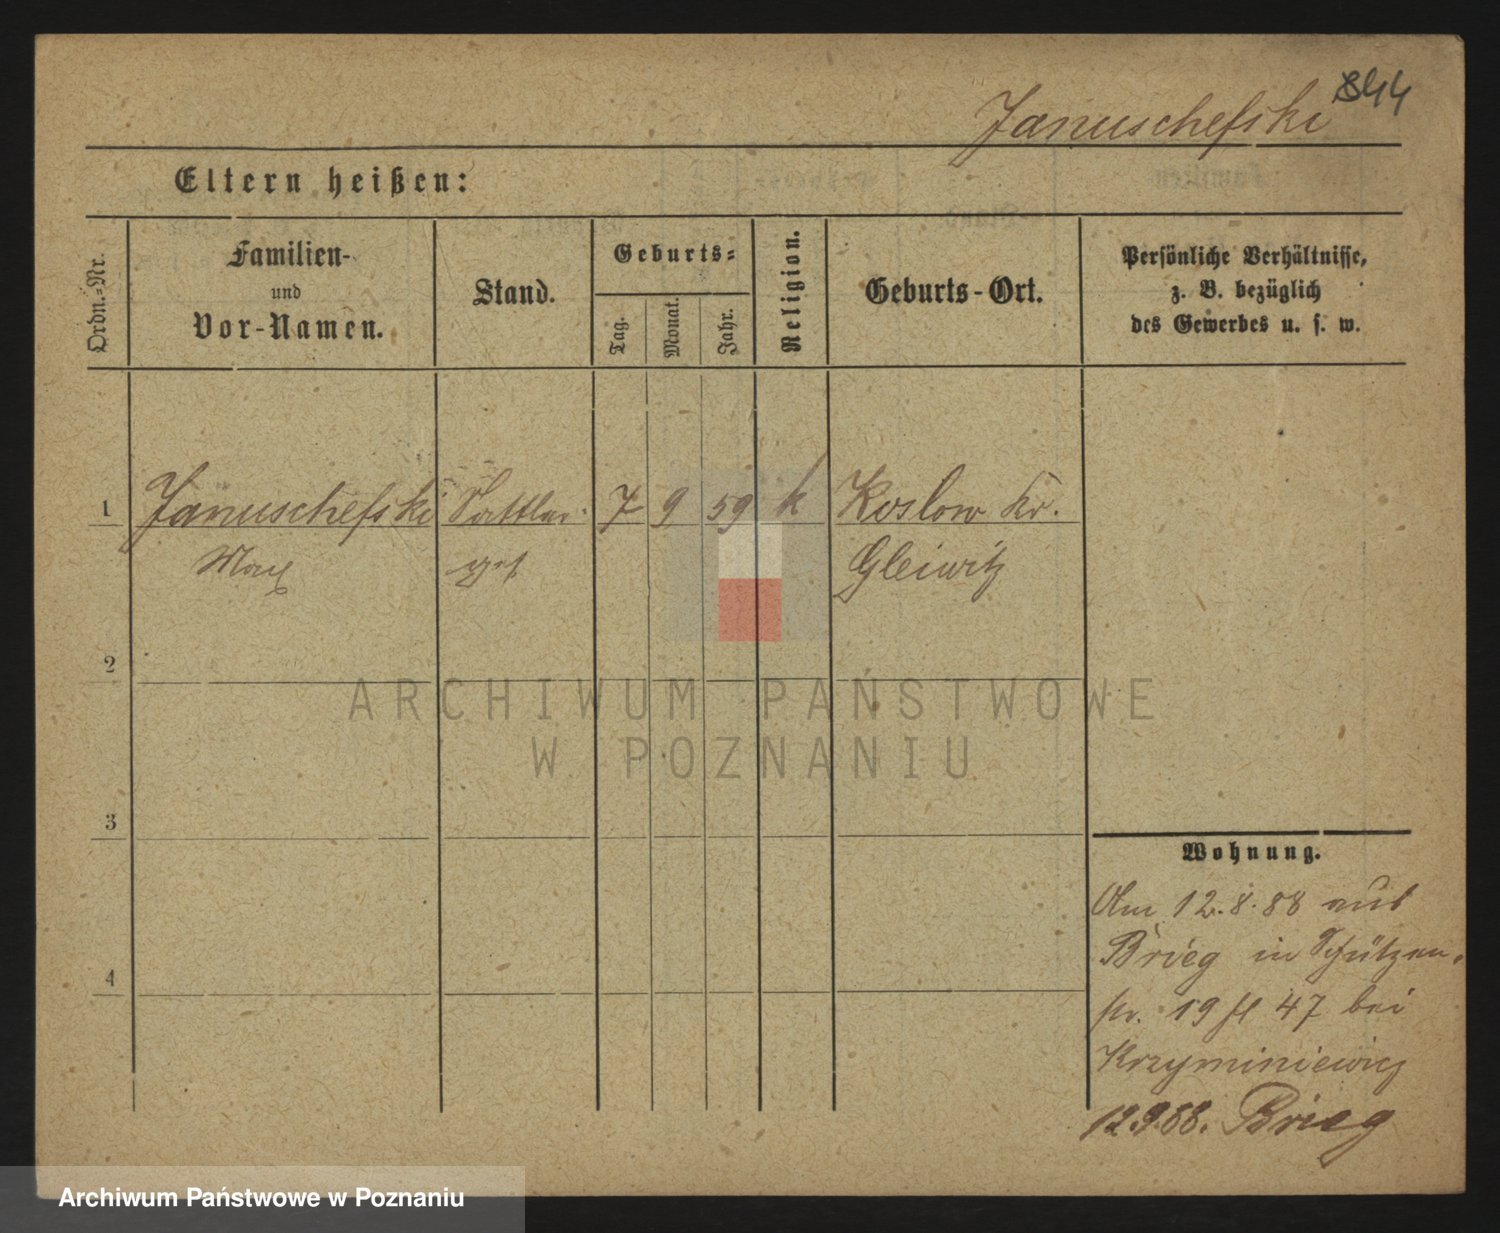 844
Januschefski
Eltern heißen:
Ordn.-Nr.
Familien-
und
Vor-Namen.
Stand.
Geburts-
Tag.
Monat.
Jahr.
Religion.
Geburts-Ort.
Persönliche Verhältnisse,
z. B. bezüglich
des Gewerbes u. s. w.
1 Januschefski Sattler- 7 9 59 k Koslow Kr.
Max Gleiwitz
2
3
4
Wohnung.
Am 12.8.88 aus
Brieg in Schützen-
str. 19 47 bei
Krzyminiewicz
12.9.88. Brieg
ARCHIWUM PAŃSTWOWE
W POZNANIU
Archiwum Państwowe w Poznaniu